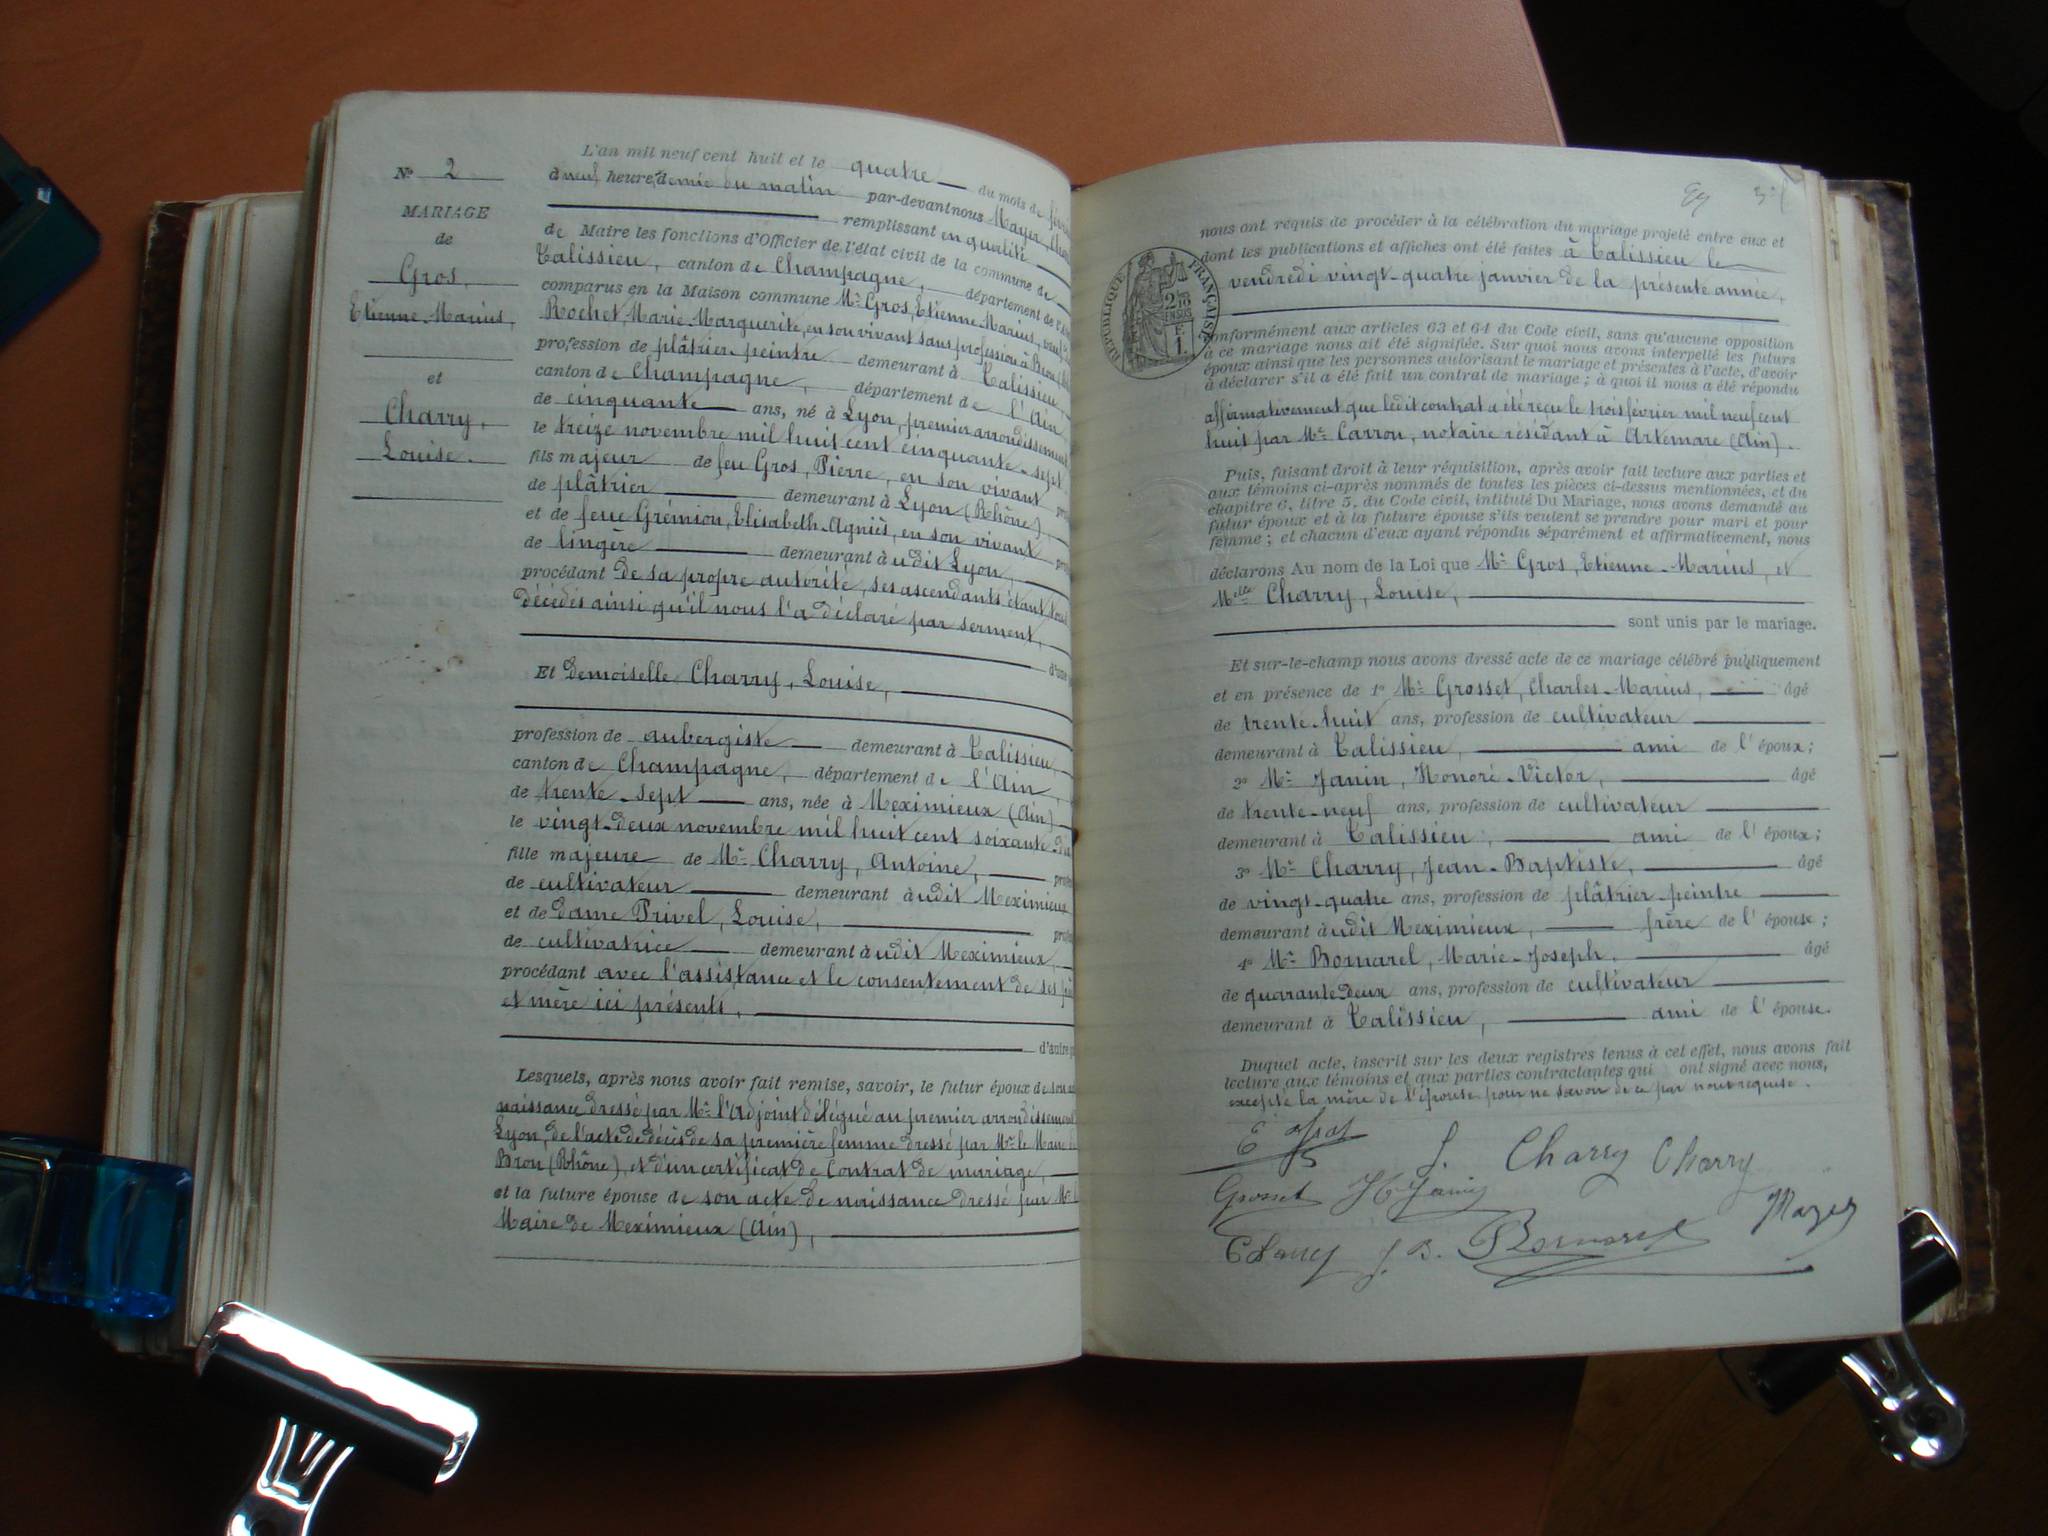 L'an mil neuf cent huit et le quatre du mois de
à neuf heures demie du matin par-devant nous Mayer,
remplissant en qualité
de Maire les fonctions d'Officier de l'état civil de la commune de
Talissieu, canton de Champagne, département de
comparus en la Maison commune Mr Gros, Etienne-Marius,
Rochet, Marie-Marguerite, en son vivant sans profession à Bron
profession de plâtrier-peintre demeurant à Talissieu,
canton de Champagne, département de l'Ain,
de cinquante ans, né à Lyon, premier arrondissement
le treize novembre mil huit cent cinquante-sept
fils majeur de feu Gros, Pierre, en son vivant
de plâtrier demeurant à Lyon (Rhône)
et de feue Grémion, Elisabeth-Agniès, en son vivant
de lingère demeurant à udit Lyon,
procédant de sa propre autorité, ses ascendants étant tous
décédés ainsi qu'il nous l'a déclaré par serment,
d'une
Et demoiselle Charry, Louise,
profession de aubergiste demeurant à Talissieu,
canton de Champagne, département de l'Ain,
de trente-sept ans, née à Meximieux (Ain)
le vingt-deux novembre mil huit cent soixante-dix
fille majeure de Mr Charry, Antoine,
de cultivateur demeurant à udit Meximieux
et de dame Privel, Louise,
de cultivatrice demeurant à udit Meximieux,
procédant avec l'assistance et le consentement de ses
et mère ici présents,
d'autre
Lesquels, après nous avoir fait remise, savoir, le futur époux de son
naissance dressé par Mr l'Adjoint délégué au premier arrondissement
Lyon, de l'acte de décès de sa première femme dressé par Mr le Maire
Bron (Rhône), et d'un certificat de Contrat de mariage,
et la future épouse de son acte de naissance dressé par Mr
Maire de Meximieux (Ain),
No 2
MARIAGE
de
Gros,
Etienne-Marius,
et
Charry,
Louise.
nous ont requis de procéder à la célébration du mariage projeté entre eux et
dont les publications et affiches ont été faites à Talissieu le
vendredi vingt-quatre janvier de la présente année,
RÉPUBLIQUE FRANÇAISE
conformément aux articles 63 et 64 du Code civil, sans qu'aucune opposition
à ce mariage nous ait été signifiée. Sur quoi nous avons interpellé les futurs
époux ainsi que les personnes autorisant le mariage et présentes à l'acte, d'avoir
à déclarer s'il a été fait un contrat de mariage ; à quoi il nous a été répondu
affirmativement que ledit contrat a été reçu le trois février mil neuf cent
huit par Me Carrou, notaire résidant à Artemare (Ain).
Puis, faisant droit à leur réquisition, après avoir fait lecture aux parties et
aux témoins ci-après nommés de toutes les pièces ci-dessus mentionnées, et du
chapitre 6, titre 5, du Code civil, intitulé Du Mariage, nous avons demandé au
futur époux et à la future épouse s'ils veulent se prendre pour mari et pour
femme ; et chacun d'eux ayant répondu séparément et affirmativement, nous
déclarons Au nom de la Loi que Mr Gros, Etienne-Marius, et
Melle Charry, Louise,
sont unis par le mariage.
Et sur-le-champ nous avons dressé acte de ce mariage célébré publiquement
et en présence de 1o Mr Grosset, Charles-Marius, âgé
de trente-huit ans, profession de cultivateur
demeurant à Talissieu, ami de l'époux;
2o Mr Janin, Honoré-Victor, âgé
de trente-neuf ans, profession de cultivateur
demeurant à Talissieu, ami de l'époux;
3o Mr Charry, Jean-Baptiste, âgé
de vingt-quatre ans, profession de plâtrier-peintre
demeurant à udit Meximieux, frère de l'épouse;
4o Mr Bornarel, Marie-Joseph, âgé
de quarante-deux ans, profession de cultivateur
demeurant à Talissieu, ami de l'épouse.
Duquel acte, inscrit sur les deux registres tenus à cet effet, nous avons fait
lecture aux témoins et aux parties contractantes qui ont signé avec nous,
excepté la mère de l'épouse pour ne savoir de ce par nous requise.
E Gros L. Charry Charry
Grosset H Janin
Charry J. B. Bornarel Mayer